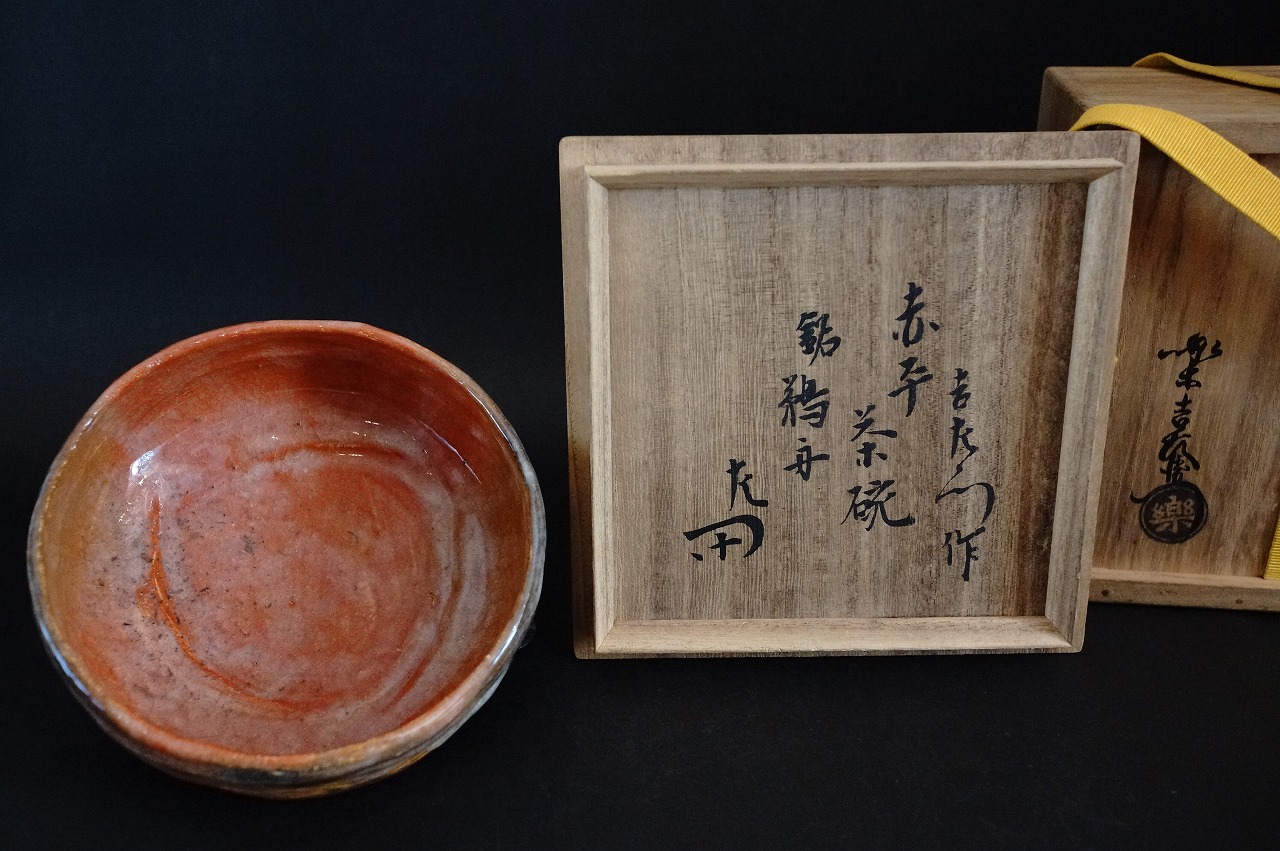 吉左衛門作
赤平
茶碗
銘
鵜舟
左
樂吉左衛門
樂